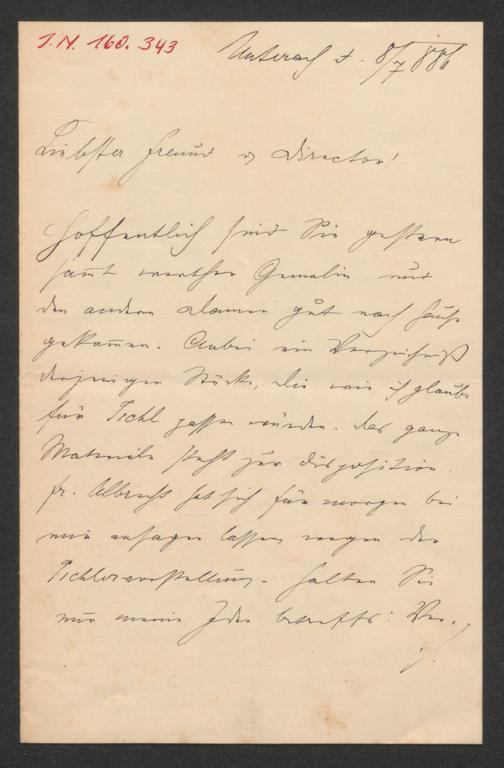 I.N. 160.343
Unterach d. 8/7 886
Liebster Freund u Director!
Hoffentlich sind Sie gestern
sam̄t werther Gemalin und
den andern Damen gut nach Hause
gekom̄en. Anbei ein Verzeichniß
derjenigen Stücke, die wie ich glaube
für Ischl passen würden. Das ganze
Materiale steht zur Disposition.
Fr. Albrecht hat sich für morgen bei
mir ansagen lassen wegen der
Ischlervorstellung. Halten Sie
nur meine Idee betreffs: Ver-